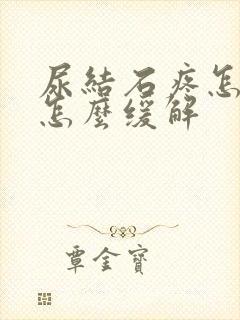 尿結石疼怎
怎麼緩解
覃金寶